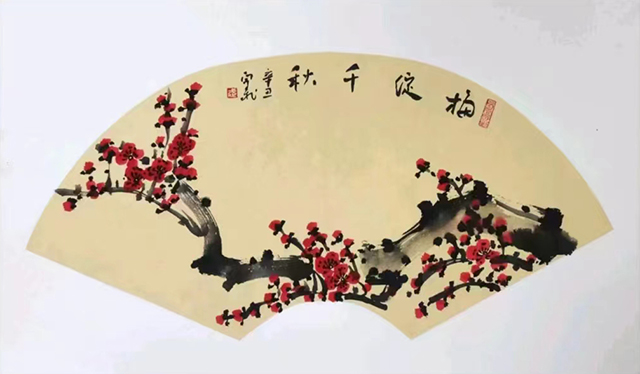 梅绽千秋
辛丑